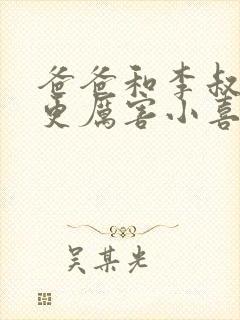 爸爸和李叔
更厲害小喜
吴某光